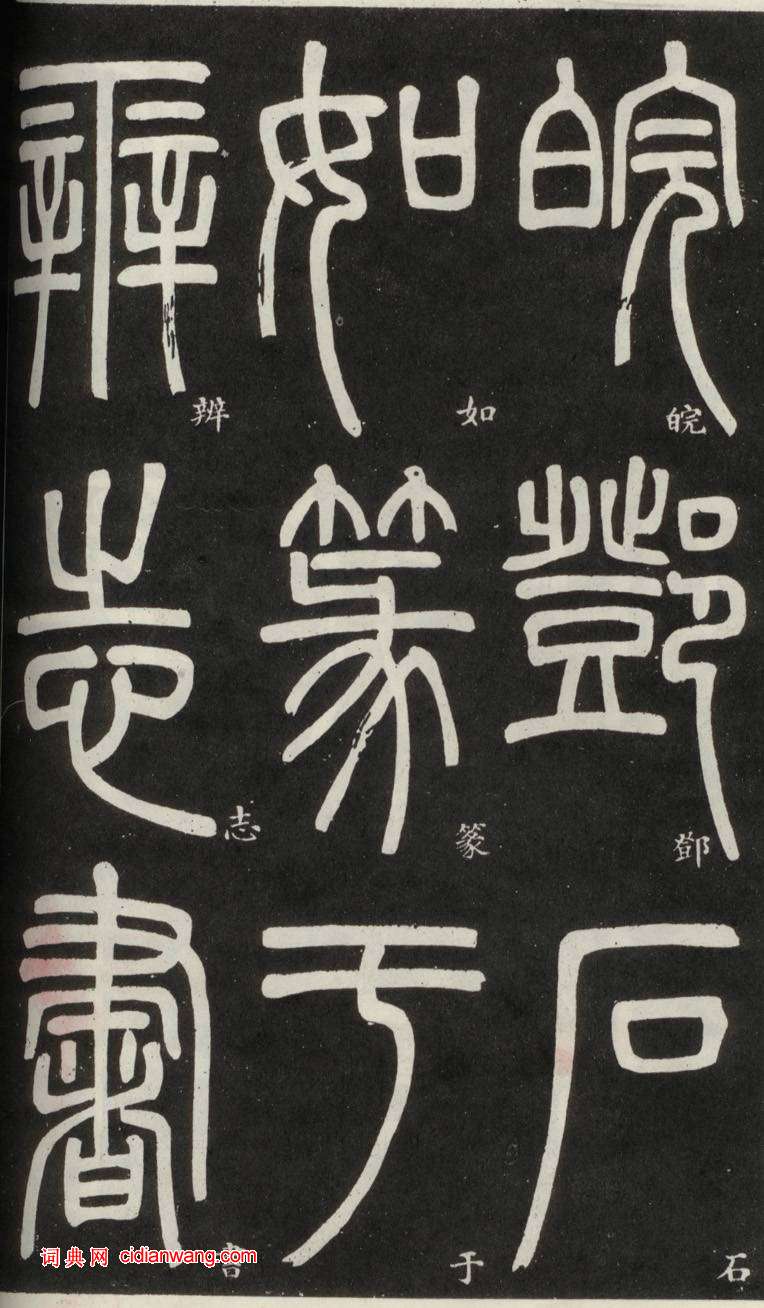 皖鄧石
如篆于
辨志書
皖
鄧
石
如
篆
于
辨
志
書
词典网 cidianwang.com